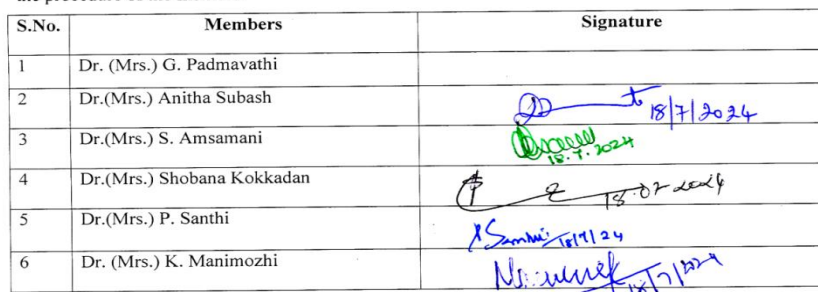 S.No. Members Signature
1 Dr. (Mrs.) G. Padmavathi
2 Dr.(Mrs.) Anitha Subash 18/7/2024
3 Dr.(Mrs.) S. Amsamani 18.7.2024
4 Dr.(Mrs.) Shobana Kokkadan 18.07.2024
5 Dr.(Mrs.) P. Santhi 18/7/24
6 Dr. (Mrs.) K. Manimozhi 18/7/2024